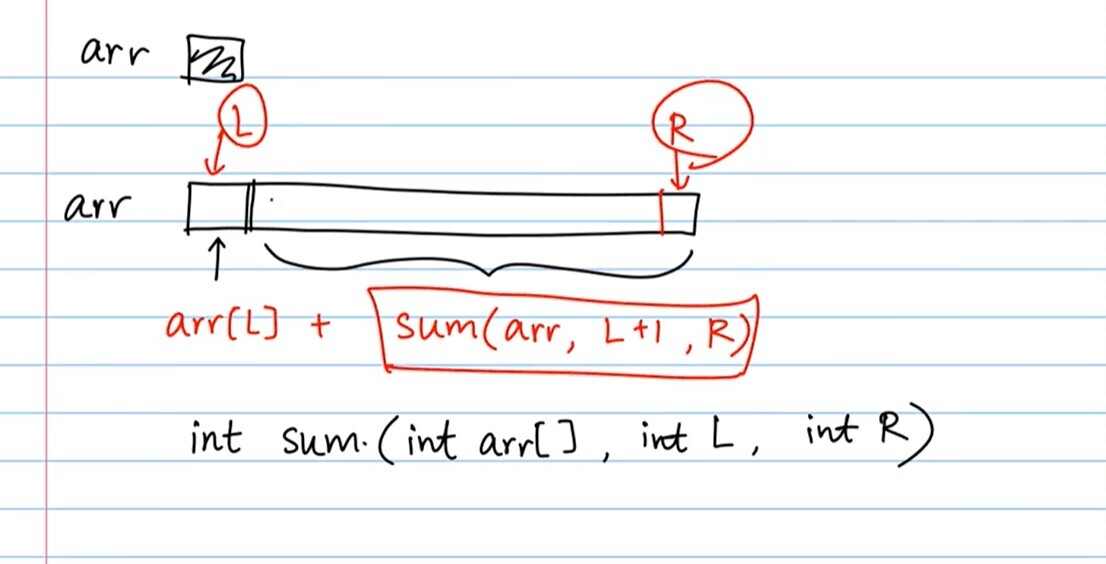 arr
L
R
arr
arr[L] + sum(arr, L+1, R)
int sum.(int arr[], int L, int R)